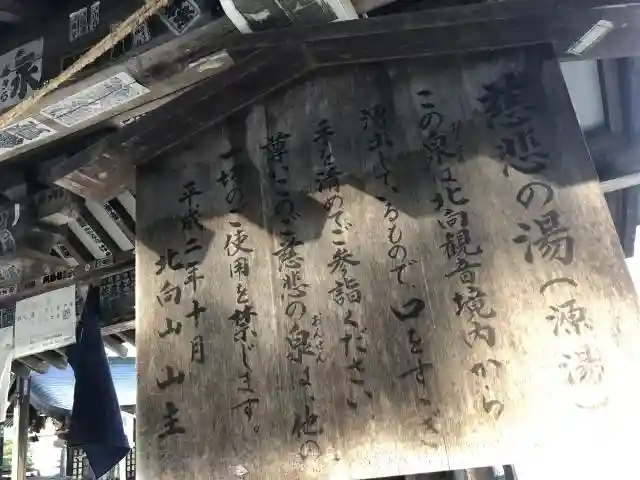 慈悲の湯（源湯）
この泉は北向観音境内から
湧出しているもので、口をすすぎ
手を清めてご参詣ください。
尊いこのご慈悲の泉は、他の
おんせん
一切のご使用を禁じます。
平成二年十月
北向山 山主